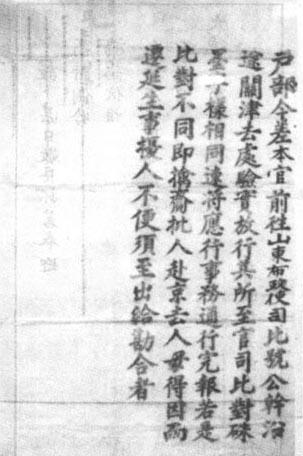 戶部今差本官前往山東布政使司比號公幹沿
途關津去處驗實放行其所至官司比對硃
墨字樣相同速將應行事務通行完報若是
比對不同即擒齎批人赴京去人毋得因而
遷延生事擾人不便須至出給勘合者